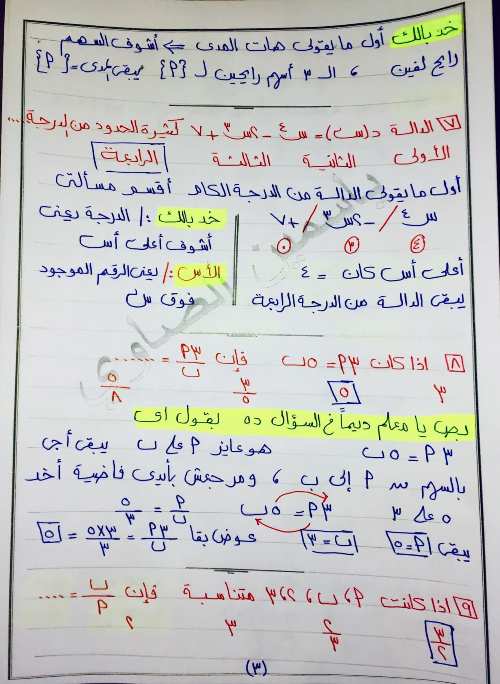 خد بالك أول ما يقولى هات المدى ⇐ أشوف السهم
رايح لفين ، الـ ٣ أسهم رايحين لـ {٣} يبقى المدى = {٣}
٧ الدالة د(س) = س٤ - ٢س٣ + ٧ كثيرة الحدود من الدرجة ....
الأولى الثانية الثالثة الرابعة
أول ما يقولى الدالة من الدرجة الكام أقسم مسألتى
س٤ / - ٢س٣ / + ٧
٤ ٣ ٠
أعلى أس كان = ٤
يبقى الدالة من الدرجة الرابعة
خد بالك :/ الدرجة يعنى
أشوف أعلى أس
الأس :/ يعنى الرقم الموجود
فوق س
٨ اذا كان ٣P = ٥ب فإن ٣P/ب = ......
٣ ٥ ٣/٥ ٥/٨
بص يا معلم ديماً فى السؤال ده بقول اى
٣P = ٥ب هو عايز P على ب يبقى أجى
بالسهم من P إلى ب ، ومرجعش بأيدى فاضية أخد
٥ على ٣ ٣P = ٥ب P/ب = ٥/٣
يبقى P = ٥ ب = ٣ عوض بقا ٣P/ب = ٣×٥/٣ = ٥
٩ اذا كانت P ، ب ، ٢ ، ٣ متناسبة فإن ب/P = ....
٣/٢ ٢/٣ ٣ ٢
(٣)
ياسمين الصاوي